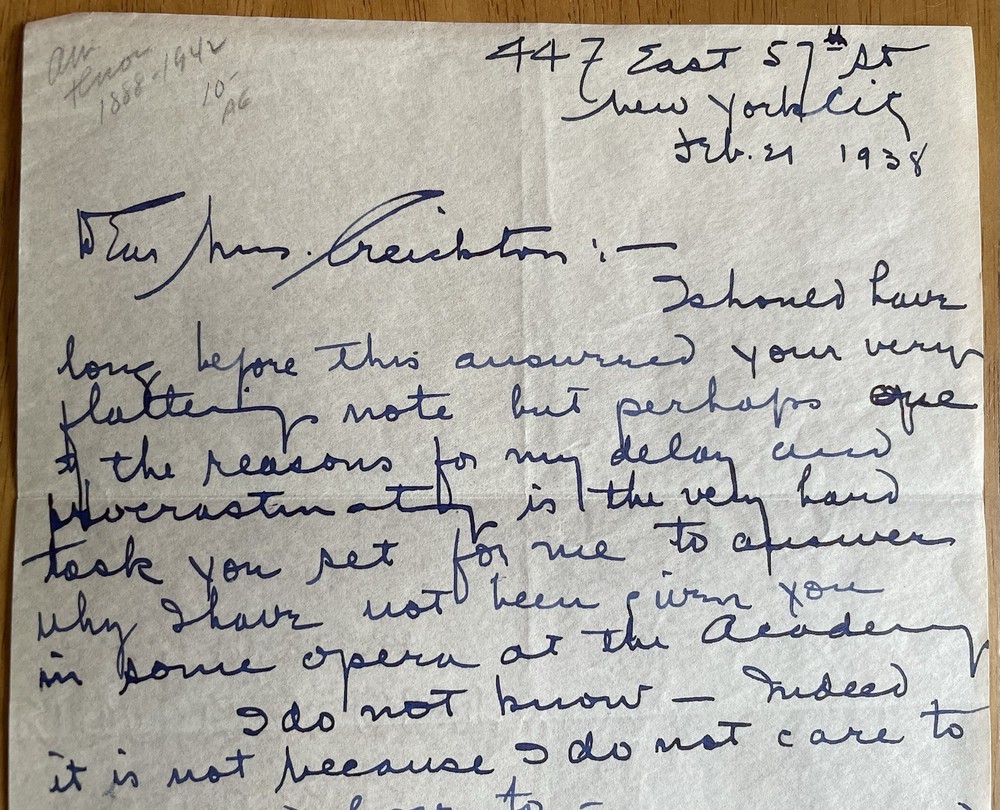 1888-1942
10-
AG
447 East 57th St
New York City
Feb. 21 1938
Dear Mrs. Creickton :—
I should have
long before this answered your very
flattering note but perhaps one
of the reasons for my delay and
procrastinating is the very hard
task you set for me to answer
why I have not been given you
in some opera at the Academy
I do not know — Indeed
it is not because I do not care to
to –